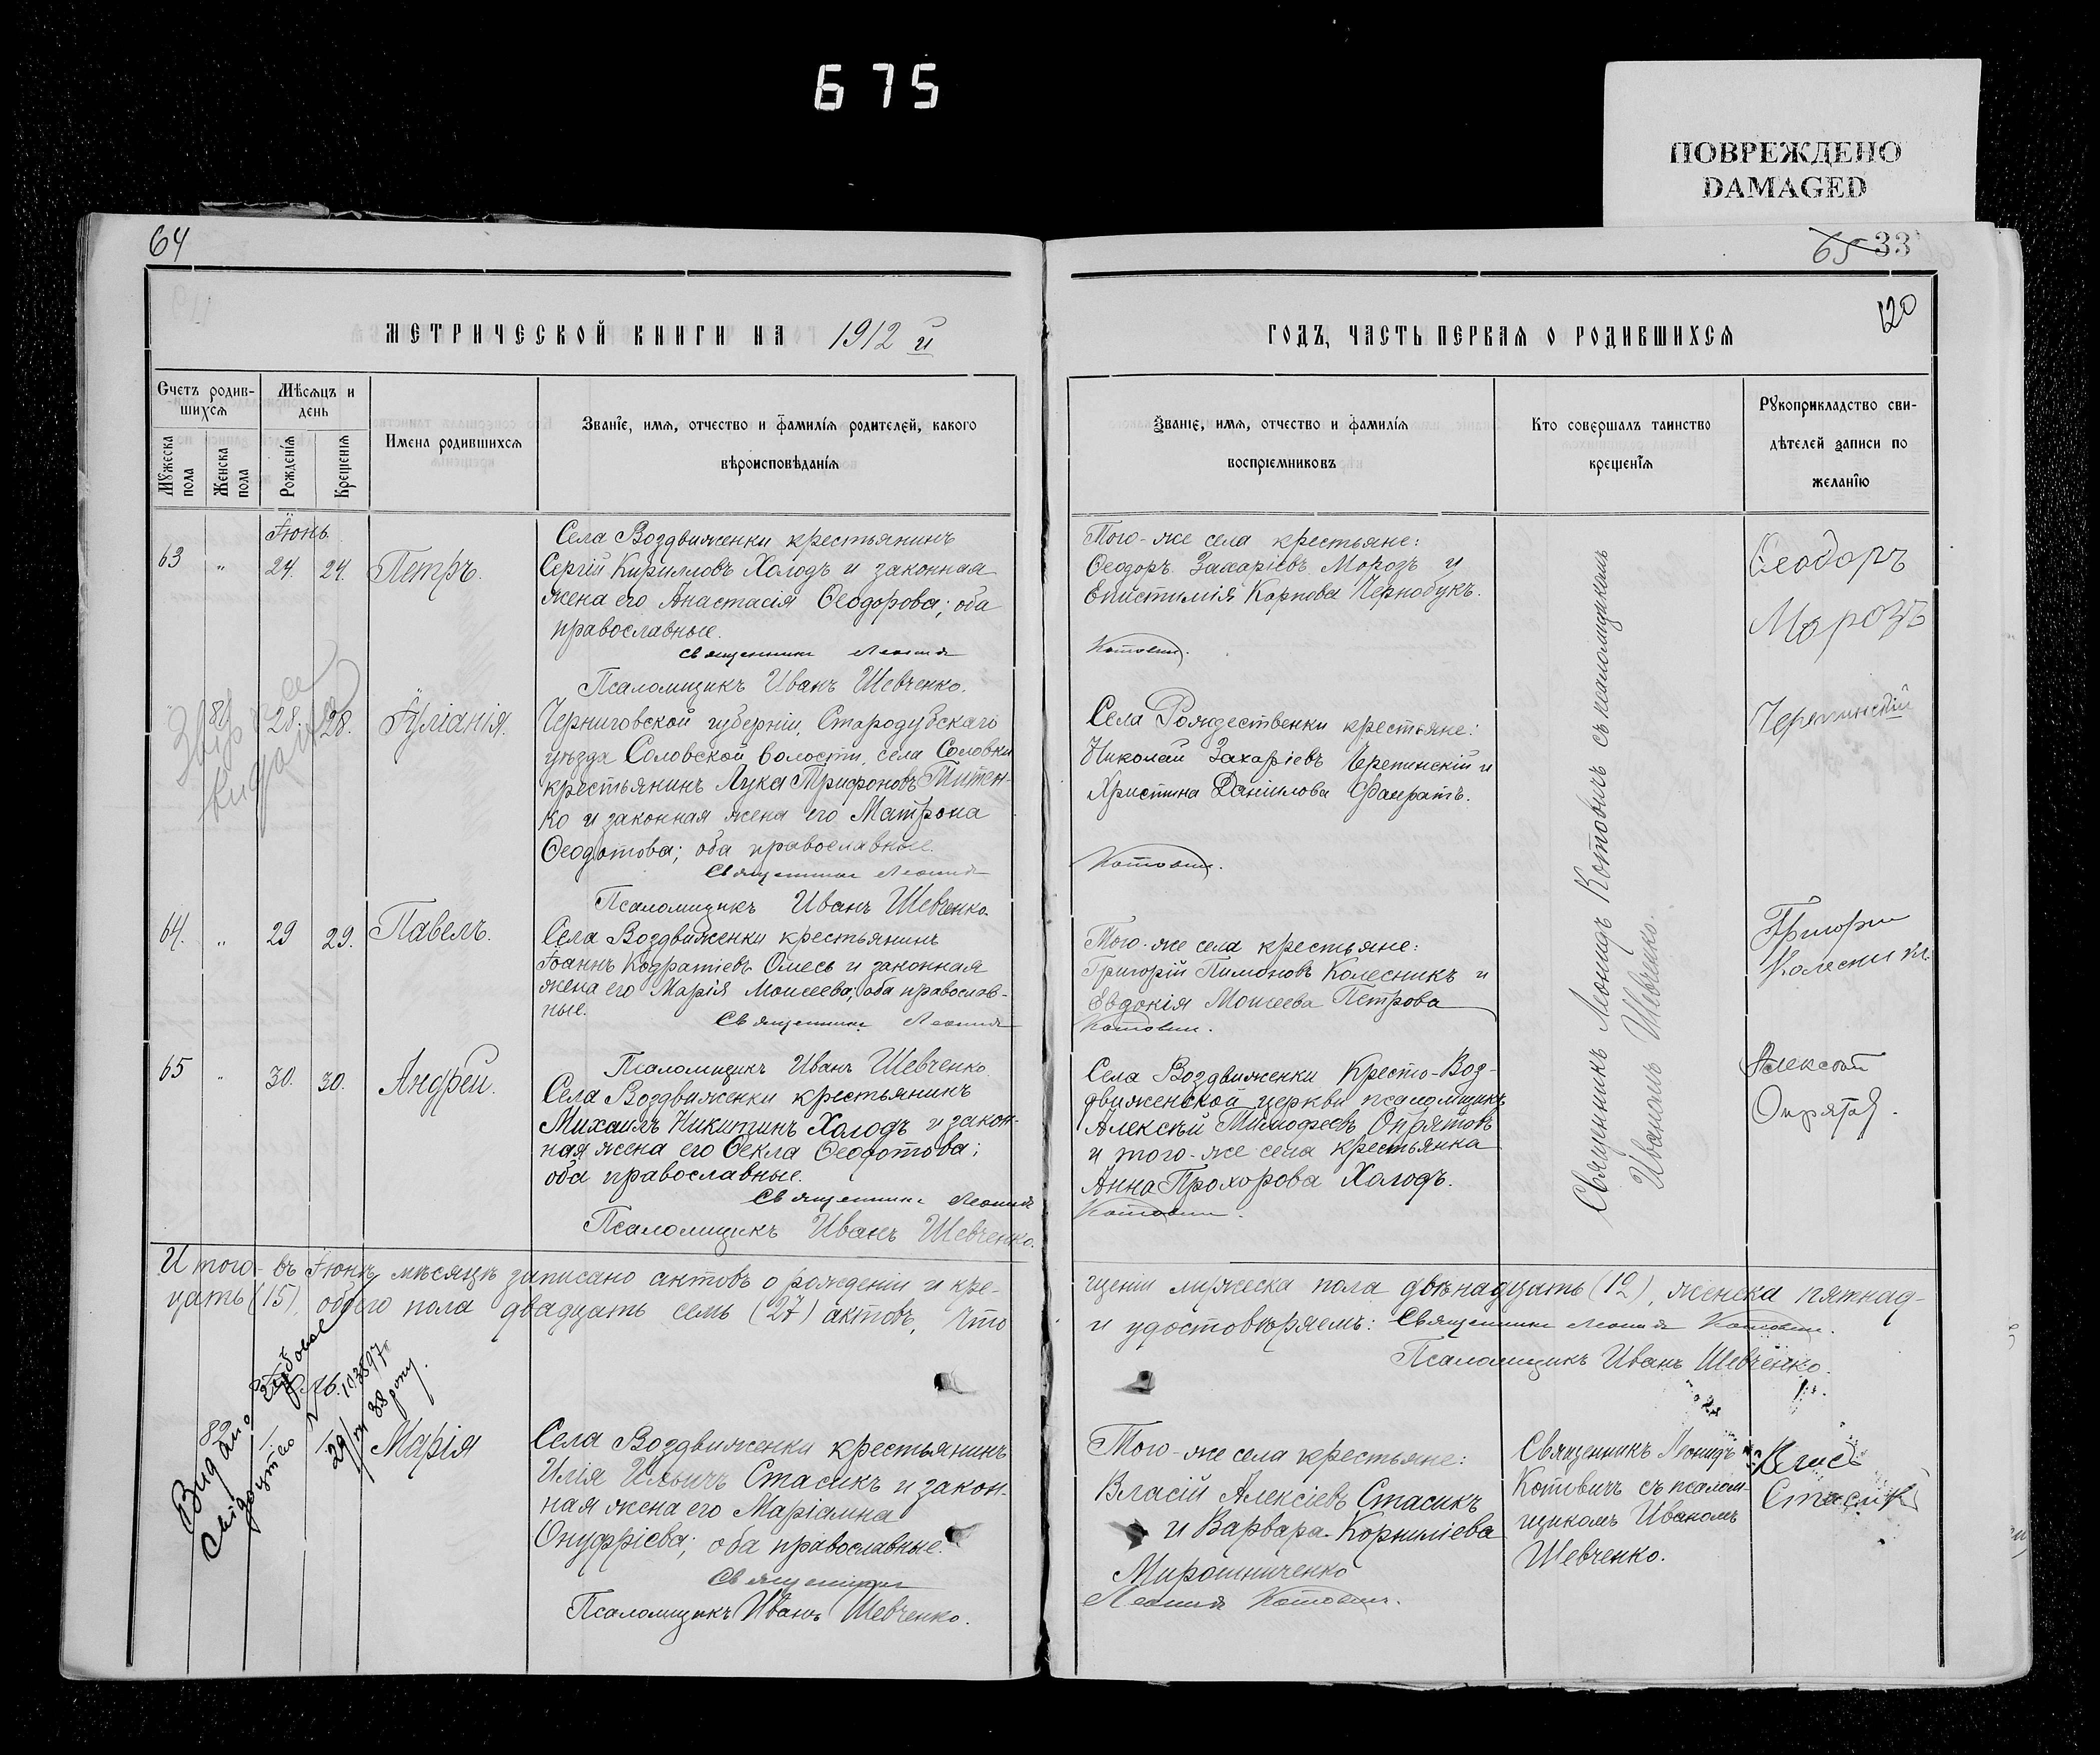 675
ПОВРЕЖДЕНО
DAMAGED
64
65 33
120
МЕТРИЧЕСКОЙ КНИГИ НА 1912 й
ГОДЪ, ЧАСТЬ ПЕРВАЯ О РОДИВШИХСЯ
Счетъ родив-
шихся
Мѣсяцъ и
день
Мужеска
пола
Женска
пола
Рожденія
Крещенія
Имена родившихся
Званіе, имя, отчество и фамилія родителей, какого
вѣроисповѣданія
Званіе, имя, отчество и фамилія
воспріемниковъ
Кто совершалъ таинство
крещенія
Рукоприкладство сви-
дѣтелей записи по
желанію
Іюнь
63 " 24. 24. Петръ.
Села Воздвиженки крестьянинъ
Сергій Кирилловъ Холодъ и законная
жена его Анастасія Ѳеодорова; оба
православные.
Священникъ Леонидъ
Псаломщикъ Иванъ Шевченко.
Того-же села крестьяне:
Ѳеодоръ Захаріевъ Морозъ и
Епистимія Карпова Чернобукъ.
Котовичъ.
Ѳеодоръ
Морозъ
81 28. 28. Іуліанія.
Черниговской губерніи, Стародубскаго
уѣзда Соловской волости, села Соловки
крестьянинъ Лука Трифоновъ Титен-
ко и законная жена его Матрона
Ѳеодотова; оба православные.
Священникъ Леонидъ
Псаломщикъ Иванъ Шевченко.
Села Рождественки крестьяне:
Николай Захаріевъ Черепинскій и
Христина Даніилова
Котовичъ.
Черепинскій
64. " 29 29. Павелъ.
Села Воздвиженки крестьянинъ
Іоаннъ Кодратіевъ Омесь и законная
жена его Марія Моисеева; оба православ-
ные.
Священникъ Леонидъ
Псаломщикъ Иванъ Шевченко
Того-же села крестьяне:
Григорій Пимоновъ Колесникъ и
Евдокія Моисеева Петрова
Котовичъ.
Григори
Колесник
65 " 30. 30. Андрей.
Села Воздвиженки крестьянинъ
Михаилъ Никитинъ Холодъ и закон-
ная жена его Ѳекла Ѳеодотова;
оба православные.
Священникъ Леонидъ
Псаломщикъ Иванъ Шевченко.
Села Воздвиженки Кресто-Воз-
движенской церкви псаломщикъ
Алексѣй Тимофеевъ Опрятовъ
и того-же села крестьянка
Анна Прохорова Холодъ.
Котовичъ.
Священникъ Леонидъ Котовичъ съ псаломщикомъ
Иваномъ Шевченко.
Алексѣй
Опрятов.
Итого въ Іюнѣ мѣсяцѣ записано актовъ о рожденіи и кре-
щеніи мужеска пола двѣнадцать (12), женска пятнад-
цать (15), обоего пола двадцать семь (27) актовъ, что
и удостовѣряемъ: Священникъ Леонидъ Котовичъ.
Псаломщикъ Иванъ Шевченко.
Видано
свідоцтво
29/ 38 року.
82 1 1 Марія
Села Воздвиженки крестьянинъ
Илія Ильичъ Стасикъ и закон-
ная жена его Маріамна
Онуфріева; оба православные.
Священникъ
Псаломщикъ Иванъ Шевченко.
Того-же села крестьяне:
Власій Алексіевъ Стасикъ
и Варвара Корниліева
Мирошниченко
Леонидъ Котовичъ.
Священникъ Леонидъ
Котовичъ съ псалом-
щикомъ Иваномъ
Шевченко.
Влас
Стасик